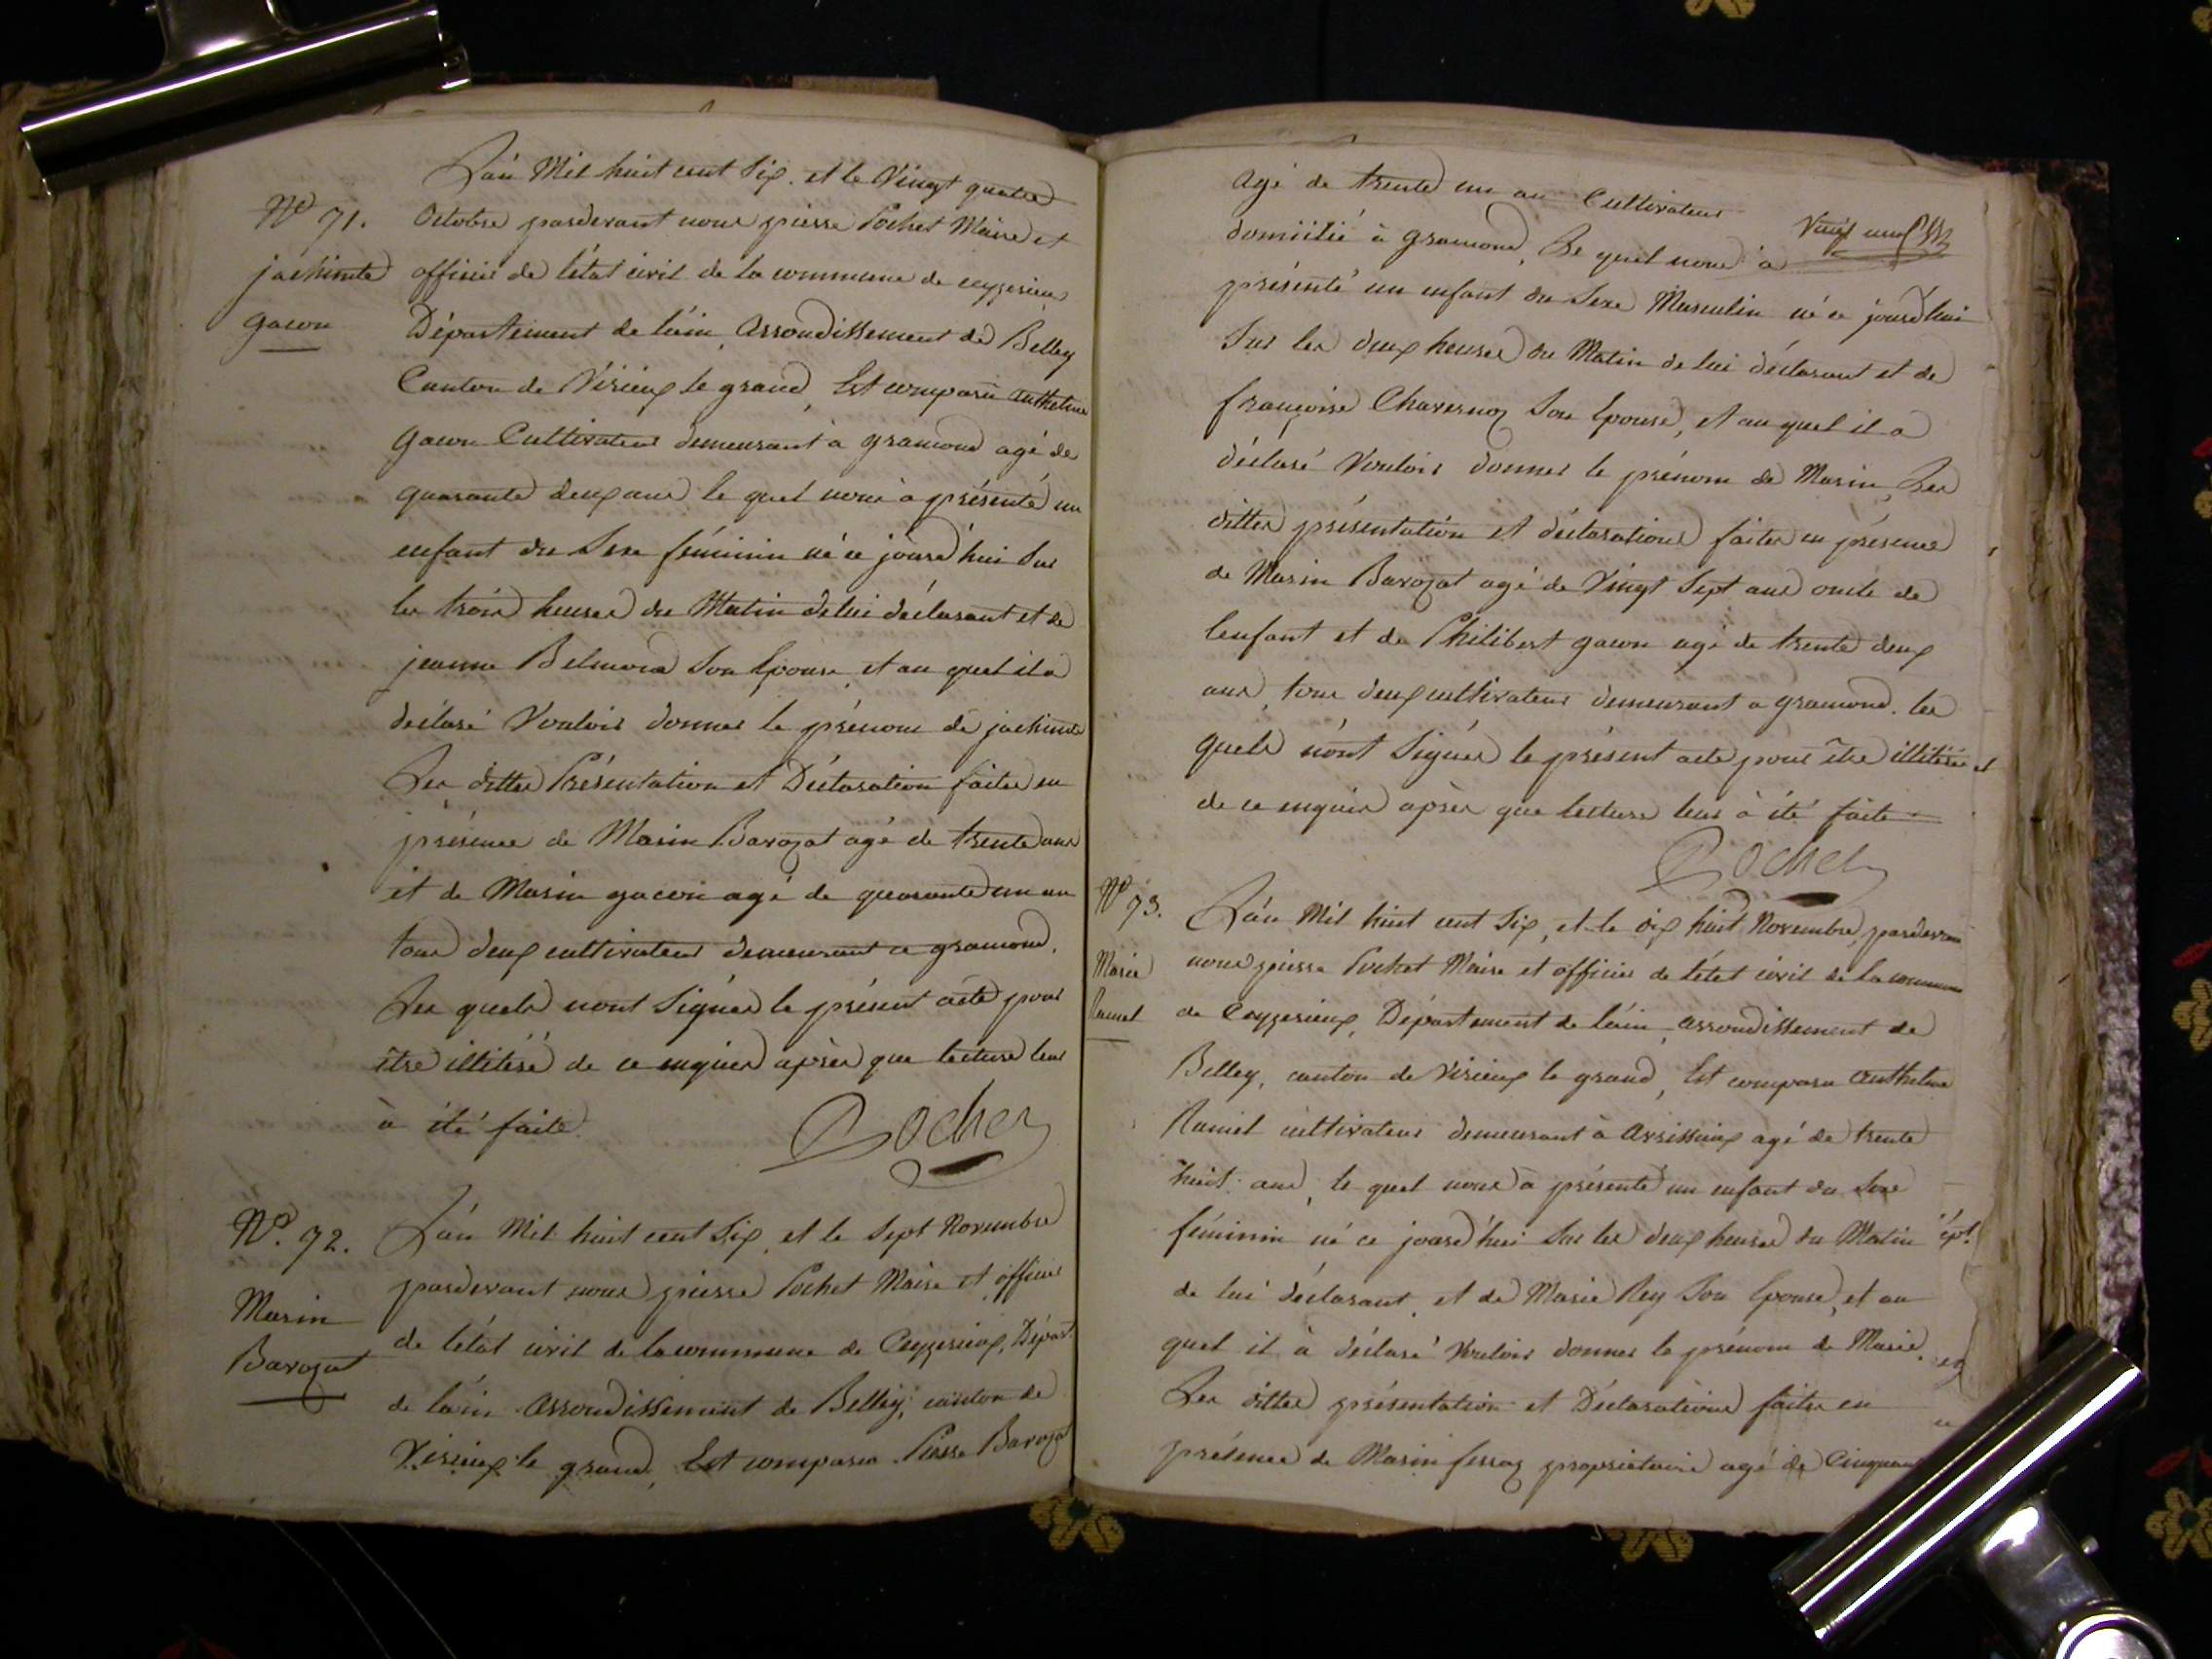 L'an Mil huit cent Six. et le Vingt quatre
N° 71. Octobre pardevant nous pierre Pochet Maire et
jachinte officier de l'état civil de la commune de ceyzerieux
gacon Département de l'ain, arrondissement de Belley
Canton de Virieux le grand, Est comparu anthelme
gacon Cultivateur demeurant à gramond agé de
quarante deux ans le quel nous a présenté un
enfant du Sexe féminin né ce jourd'hui Sur
les trois heures du Matin de lui déclarant et de
jeanne Son Epouse, et au quel il a
déclaré Vouloir donner le prénom de jachinte
Les dittes Présentation et Déclaration faites en
présence de Marin Barozat agé de trente ans
et de Marin gacon agé de quarante un an
tous deux cultivateurs demeurant a gramond.
Les quels nont Signés le présent acte pour
être illitéré de ce enquier après que lecture leur
à été faite. Pochet
N°. 72. L'an Mil huit cent Six, et le Sept Novembre
pardevant nous pierre Pochet Maire et officier
Marin de l'état civil de la commune de Ceyzerieux, Départ.
Barozat de l'ain arrondissement de Belley, canton de
Virieux le grand, Est comparu Pierre Barozat
agé de trente un an Cultivateur
Vingt neuf
domicilié à gramond, Le quel nous à
présenté un enfant du Sexe Masculin né ce jourd'hui
Sur les deux heures du Matin de lui déclarant et de
françoise Chavernoz Son Epouse, et au quel il a
déclaré Vouloir donner le prénom de Marin, Les
dittes présentation et déclarations faites en présence
de Marin Barozat agé de Vingt Sept ans oncle de
lenfant et de Philibert gacon agé de trente deux
ans, tous deux cultivateurs demeurant a gramond. les
quels n'ont Signés le présent acte pour être illitérés et
de ce enquier après que lecture leur à été faite
Pochet
N° 73. L'an Mil huit cent Six, et le dix huit Novembre, pardevant
Marie nous pierre Pochet Maire et officier de l'état civil de la commune
Ramel de Ceyzerieux, Département de l'ain, arrondissement de
Belley, canton de Virieux le grand, Est comparu anthelme
Ramel cultivateur demeurant à avrissieux agé de trente
huit ans, le quel nous à présenté un enfant du Sexe
féminin né ce jourd'hui Sur les deux heures du Matin
de lui déclarant, et de Marie Rey Son Epouse, et au
quel il à déclaré Vouloir donner le prénom de Marie.
Les dittes présentation et Déclarations faites en
présence de Marin ferraz propriétaire agé de